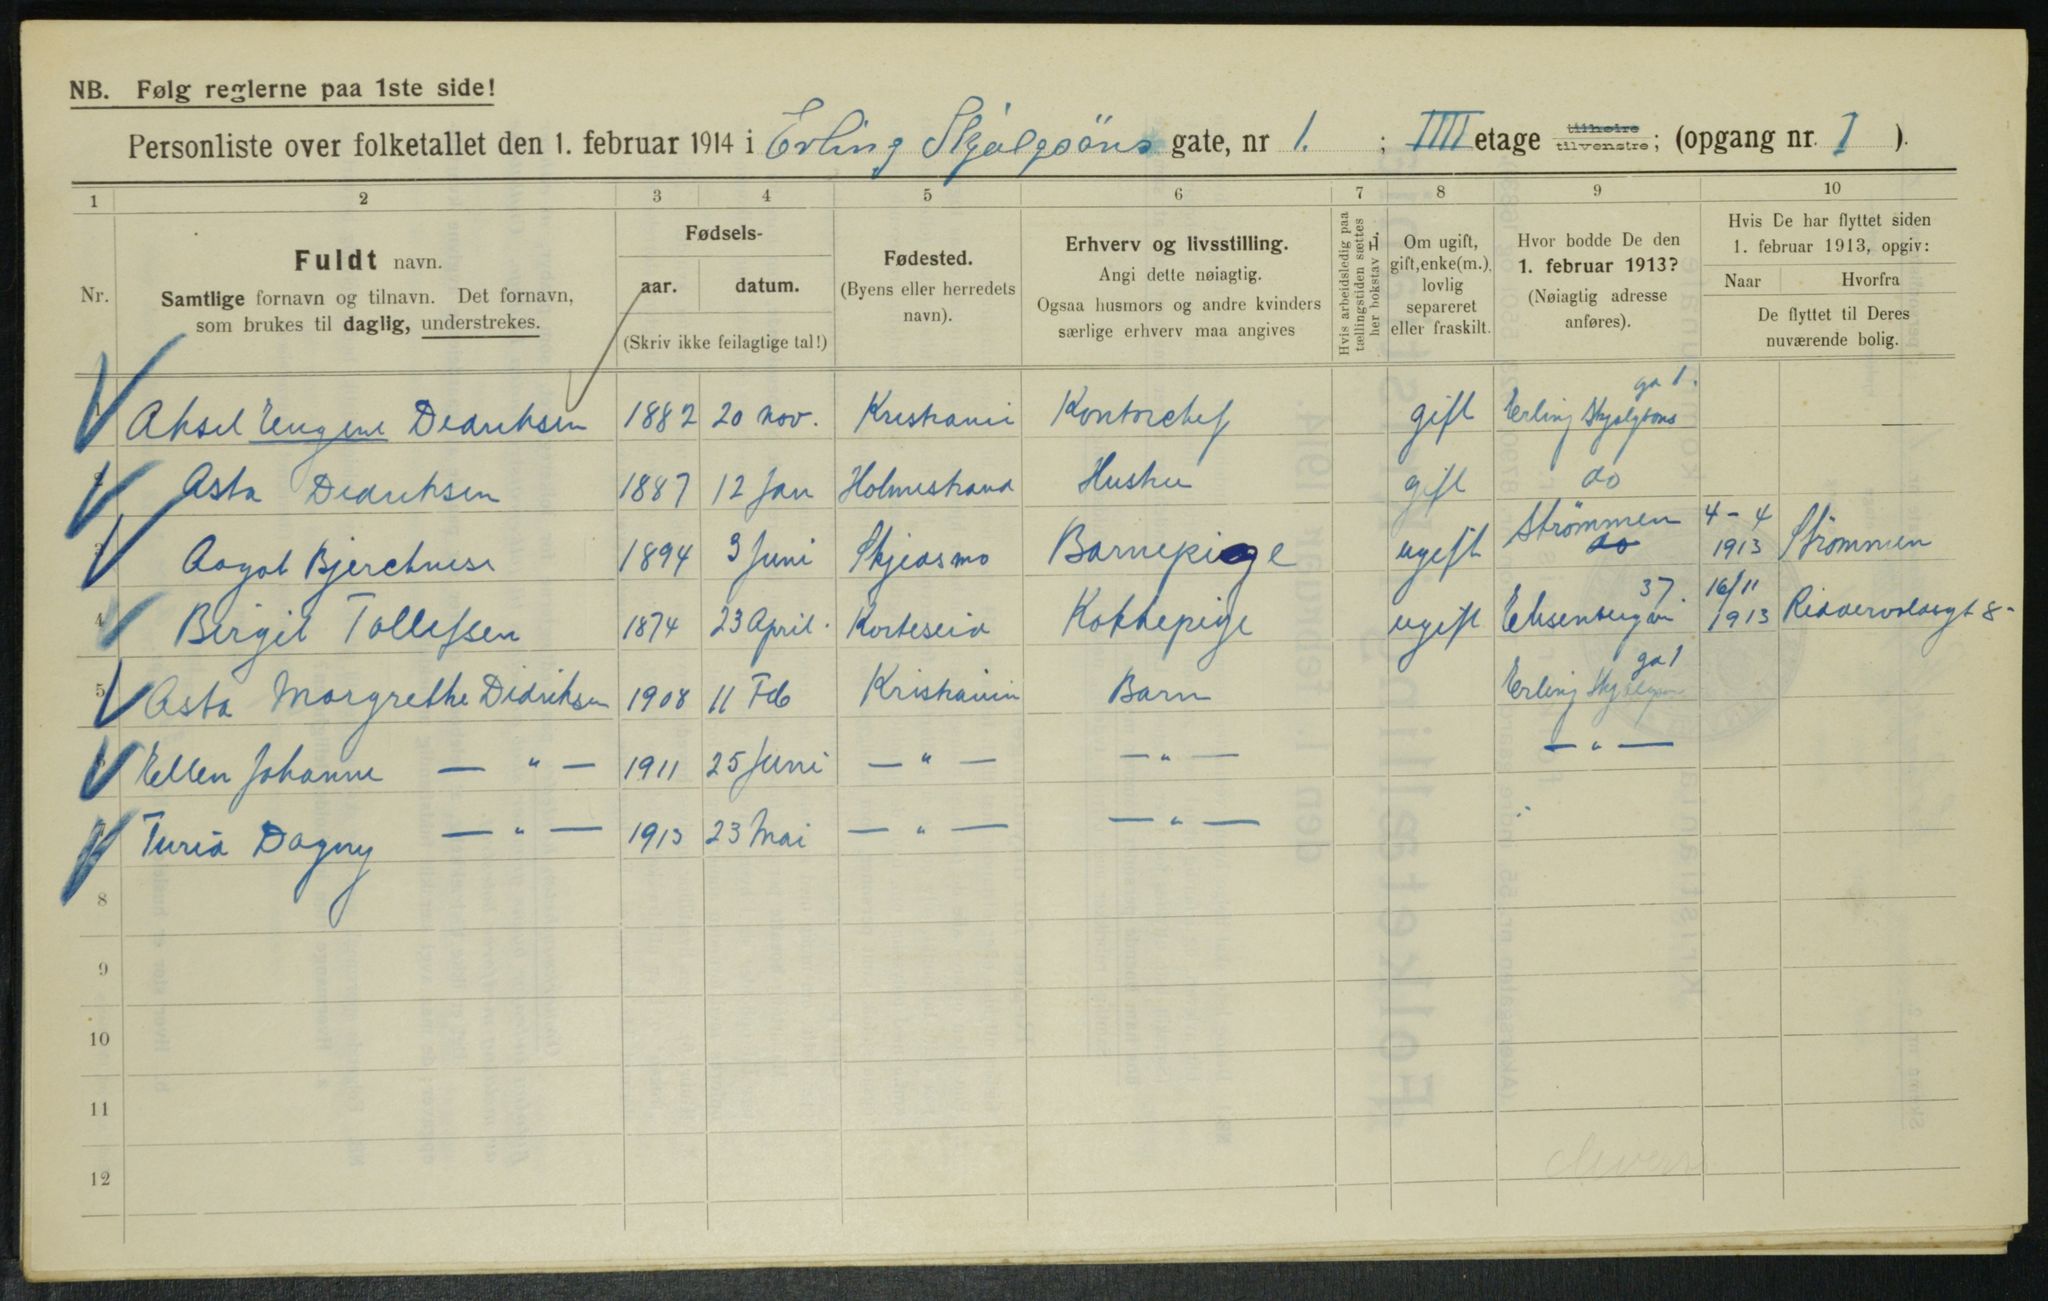 NB. Følg reglerne paa 1ste side!
Personliste over folketallet den 1. februar 1914 i Erling Skjalgsöns gate, nr 1. ; IIII etage tilhøire tilvenstre ; (opgang nr. I ).
1 2 3 4 5 6 7 8 9 10
Nr.
Fuldt navn.
Samtlige fornavn og tilnavn. Det fornavn,
som brukes til daglig, understrekes.
Fødsels-
aar. datum.
(Skriv ikke feilagtige tal!)
Fødested.
(Byens eller herredets
navn).
Erhverv og livsstilling.
Angi dette nøiagtig.
Ogsaa husmors og andre kvinders
særlige erhverv maa angives
Hvis arbeidsledig paa
tællingstiden sættes
her bokstav L.
Om ugift,
gift, enke(m.),
lovlig
separeret
eller fraskilt.
Hvor bodde De den
1. februar 1913?
(Nøiagtig adresse
anføres).
Hvis De har flyttet siden
1. februar 1913, opgiv:
Naar Hvorfra
De flyttet til Deres
nuværende bolig.
1 Aksel Eugene Dedriksen 1882 20 Nov. Kristiania Kontorchef gift Erling Skjalgsons ga 1.
2 Asta Dedriksen 1887 12 Jan Holmestrand Hustru gift do
3 Aagot 1894 3 Juni Barnepige ugift Strömmen do 4-4 1913 Strömmen
4 Birgit Tollefsen 1874 23 April. Korteseid Kokkepige ugift 37. 16/11 1913 Riddervoldsgt 8-
5 Asta Margrethe Didriksen 1908 11 Feb Kristiania Barn Erling Skjalgson ga 1
6 Ellen Johanne — " — 1911 25 Juni — " — — " — — " —
7 Turid Dagny — " — 1913 23 Mai — " — — " —
8
9
10
11
12